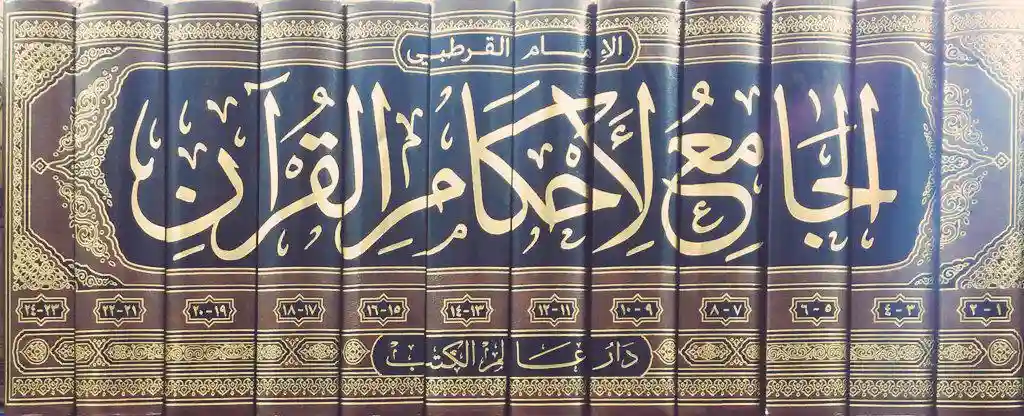 الإمام القرطبي
الجامع لأحكام القرآن
١ - ٢ ٣ - ٤ ٥ - ٦ ٧ - ٨ ٩ - ١٠ ١١ - ١٢ ١٣ - ١٤ ١٥ - ١٦ ١٧ - ١٨ ١٩ - ٢٠ ٢١ - ٢٢ ٢٣ - ٢٤
دار عالم الكتب